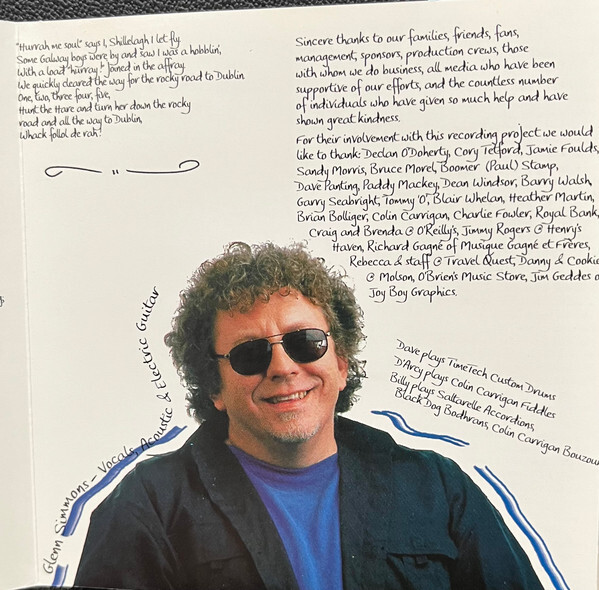 "Hurrah me soul" says I, Shillelagh I let fly.
Some Galway boys were by and saw I was a hobblin',
With a load "hurray" joined in the affray.
We quickly cleared the way for the rocky road to Dublin
One, two, three four, five,
Hunt the Hare and turn her down the rocky
road and all the way to Dublin,
Whack follol de rah!
Sincere thanks to our families, friends, fans,
management, sponsors, production crews, those
with whom we do business, all media who have been
supportive of our efforts, and the countless number
of individuals who have given so much help and have
shown great kindness.
For their involvement with this recording project we would
like to thank: Declan O'Doherty, Cory Tetford, Jamie Foulds,
Sandy Morris, Bruce Morel, Boomer (Paul) Stamp,
Dave Panting, Paddy Mackey, Dean Windsor, Barry Walsh,
Garry Seabright, Tommy 'O', Blair Whelan, Heather Martin,
Brian Bolliger, Colin Carrigan, Charlie Fowler, Royal Bank,
Craig and Brenda @ O'Reilly's, Jimmy Rogers @ Henry's
Haven, Richard Gagné of Musique Gagné et Frères,
Rebecca & staff @ Travel Quest, Danny & Cookie
@ Molson, O'Brien's Music Store, Jim Geddes
Joy Boy Graphics.
Glenn Simmons - Vocals, Acoustic & Electric Guitar
Dave plays TimeTech Custom Drums
D'Arcy plays Colin Carrigan Fiddles
Billy plays Saltarelle Accordions,
Black Dog Bodhrans, Colin Carrigan